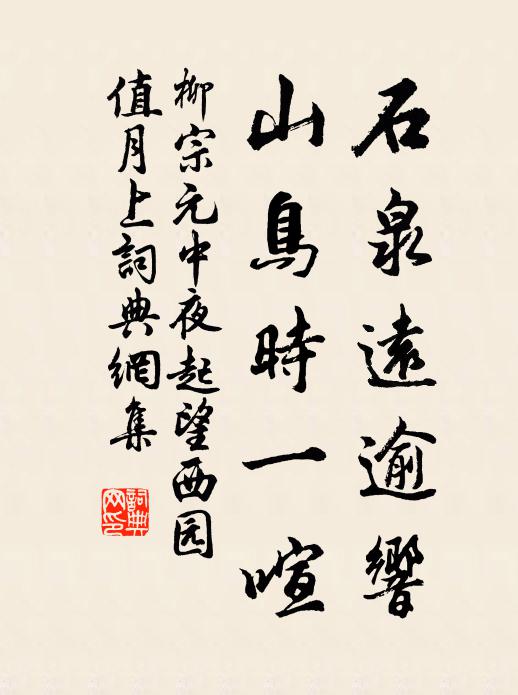 石泉遠逾響
山鳥時一喧
柳宗元中夜起望西园
值月上詞典網集
詞典
网印